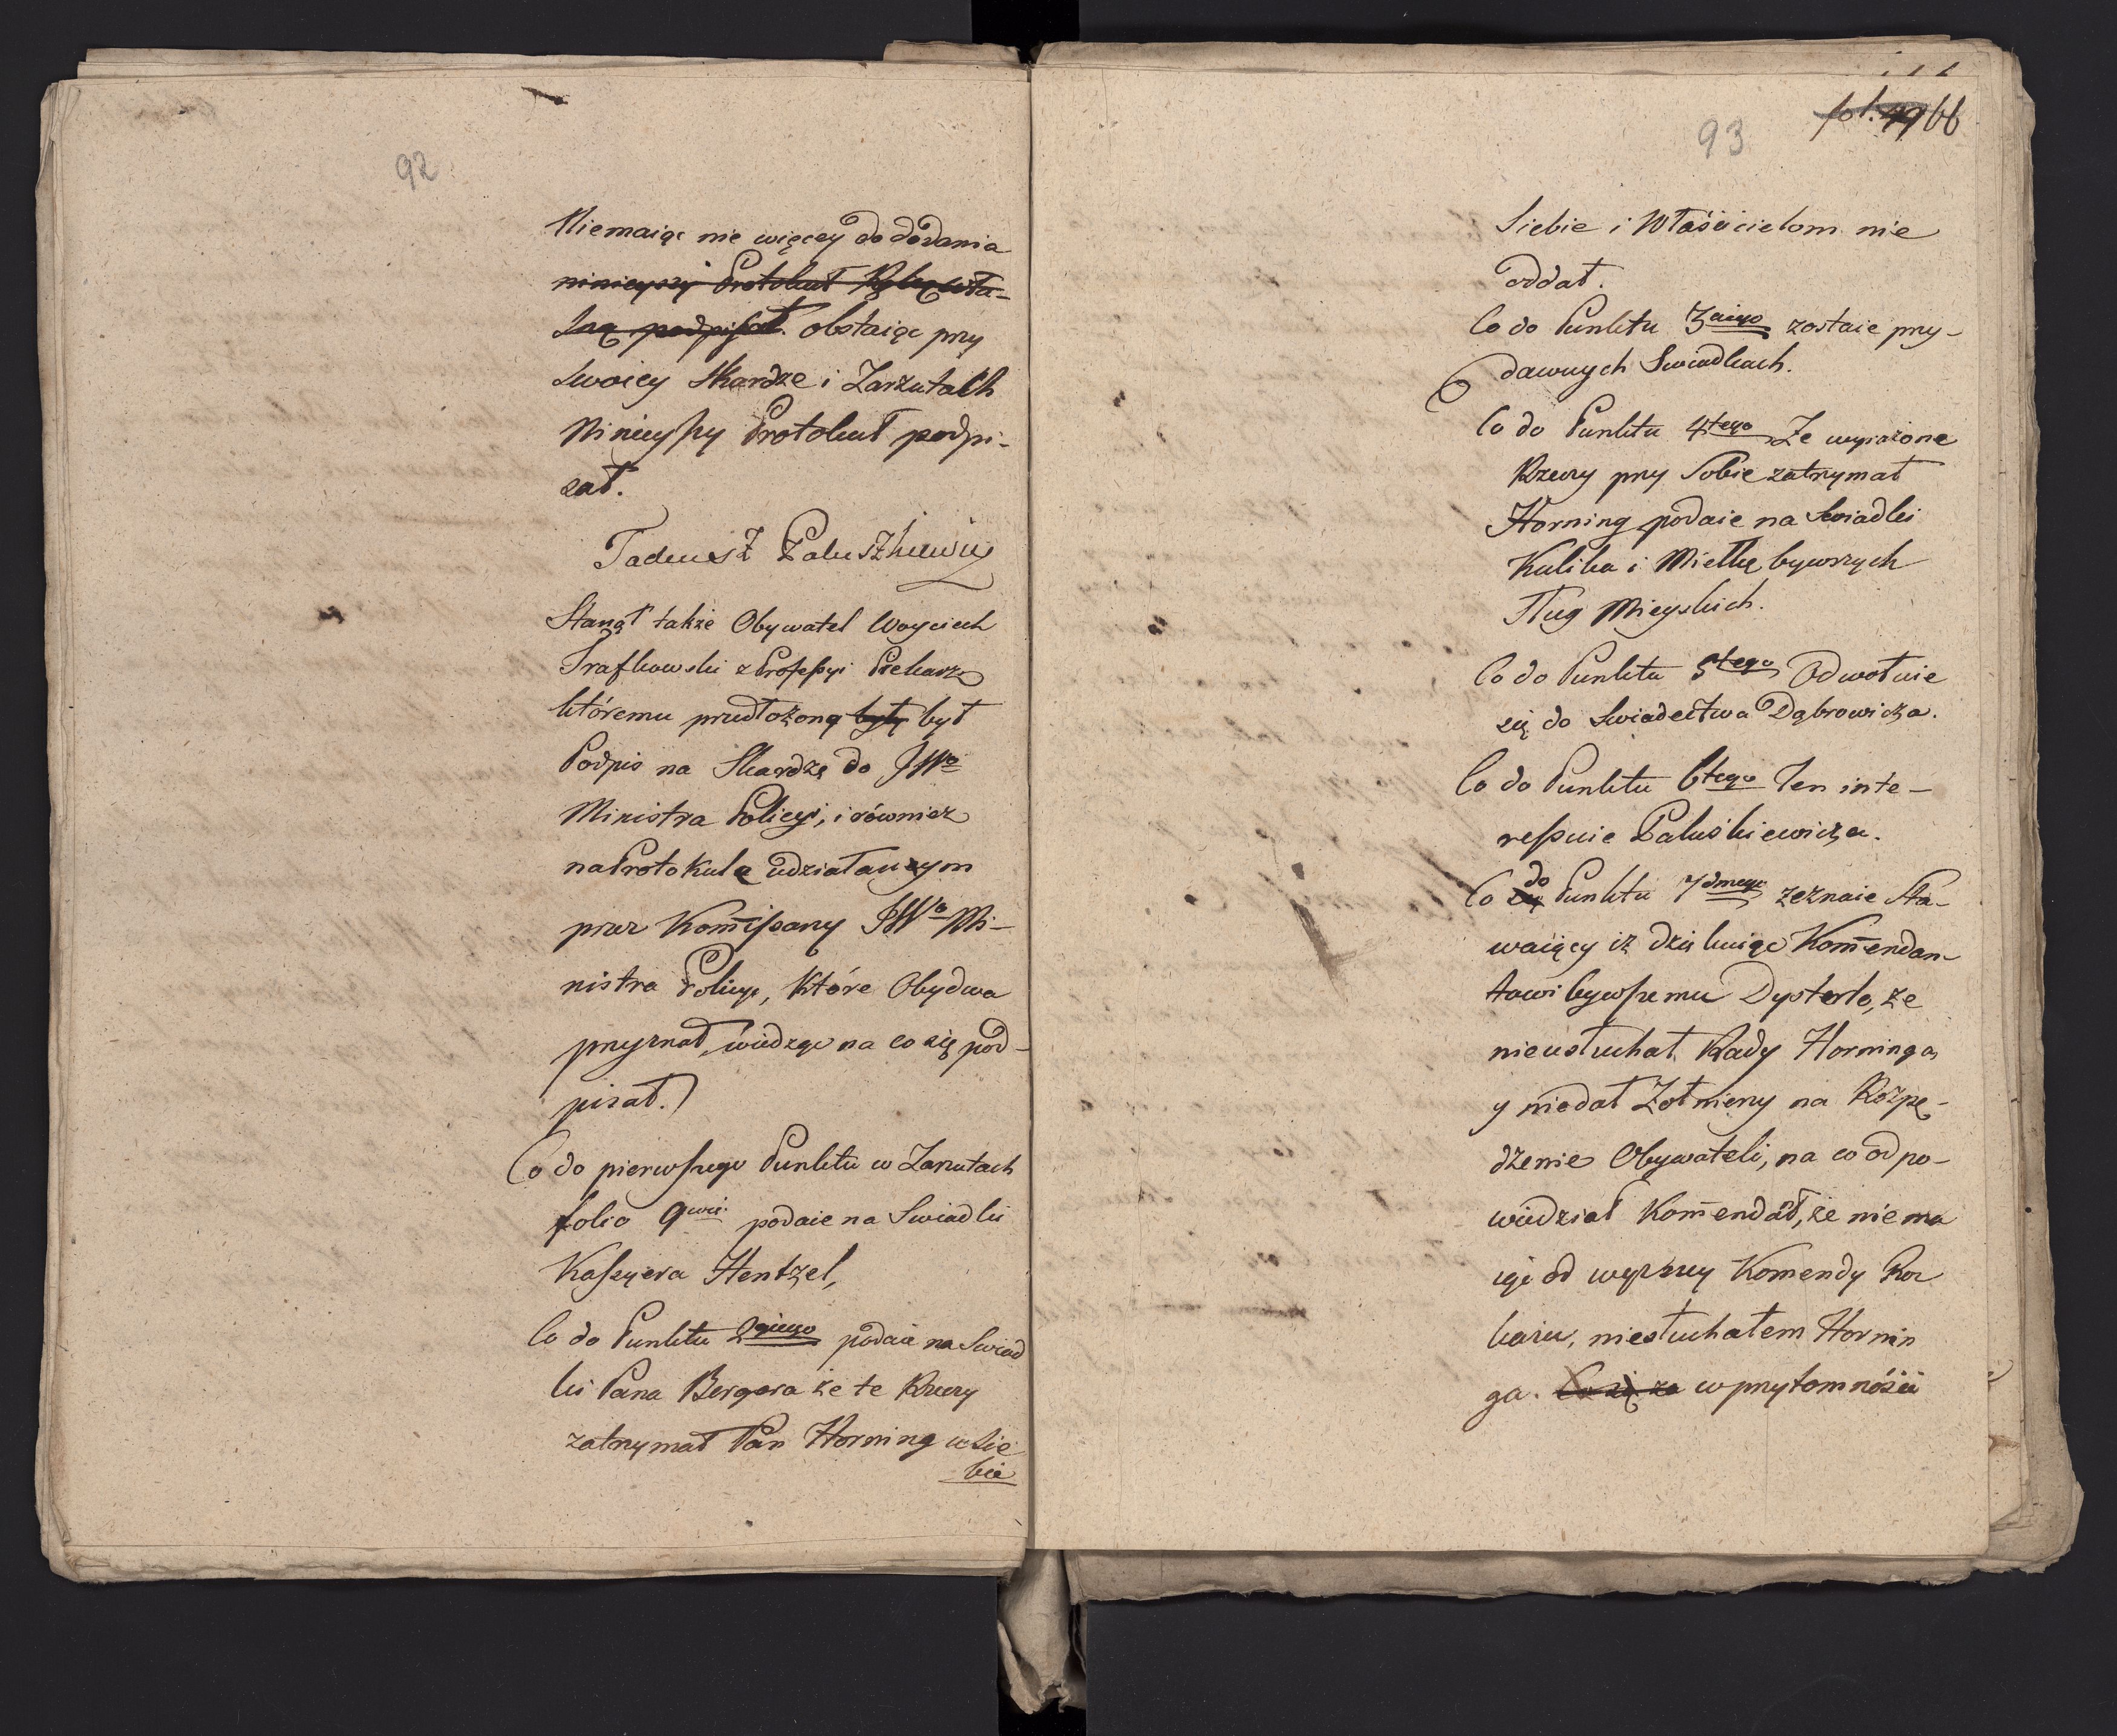 92
Niemaiąc nic więcey do dodania
ninieyszy Protokuł Ręką wła-
sną podpisał. obstaiąc przy
swoiey Skardze i Zarzutach
Ninieyszy Protokuł podpi-
sał.
Tadeusz Paluszkiewicz
Stanął także Obywatel Woyciech
Trafkowski z Professyi Piekarz
któremu przedłożoną były był
Podpis na Skardzę do JWo
Ministra Policyi, i również
na Protokulę udziałanym
przez Komissarzy JWo Mi-
nistra Policyi, które Obydwa
przyznał, wiedząc na co się pod-
pisał.
Co do pierwszego Punktu w Zarzutach
folio 9 podaie na Swiadki
Kassyera Hentzel,
Co do Punktu 2giego podaie na Swiad
ki Pana Bergera że te Rzeczy
zatrzymał Pan Horning u Sie
bie
fol. 49 66
93
Siebie i Właścicielom nie
oddał.
Co do Punktu 3ciego zostaie przy-
dawnych Swiadkach.
Co do Punktu 4tego Ze wyrażone
Rzeczy przy Sobie zatrzymał
Horning podaie na Swiadki
Kulika i Mielkę bywszych
Sług Mieyskich.
Co do Punktu 5tego Odwołuie
się do Swiadectwa Dąbrowicza.
Co do Punktu 6tego Ten inte-
ressuie Paluśkiewicza.
Co do Punktu 7dmego zeznaie Sta-
waiący iż dziękuiąc Kom̄endan-
towi bywszemu Dysterlo, że
nieusłuchał Rady Horninga
y niedał Zołnierzy na Rozpę-
dzenie Obywateli, na co odpo-
wiedział Kom̄endat, że nie ma
iąc od wyższey Komendy Roz
kazu, niesłuchałem Hornin
ga. Co się za w przytomności